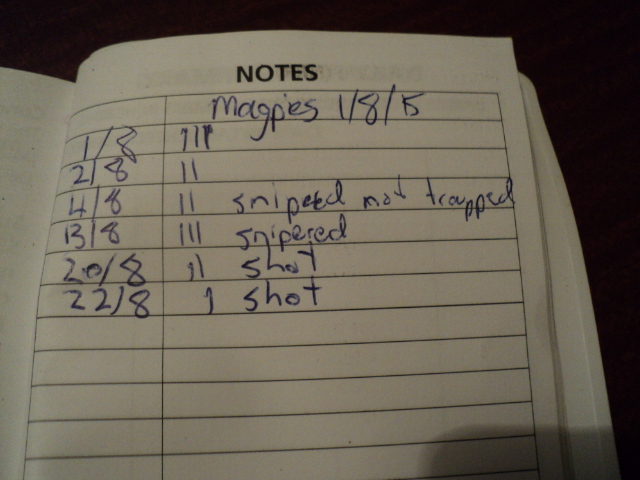 NOTES
Magpies 1/8/15
1/8 III
2/8 II
4/8 II snipered not trapped
13/8 III snipered
20/8 II shot
22/8 I shot